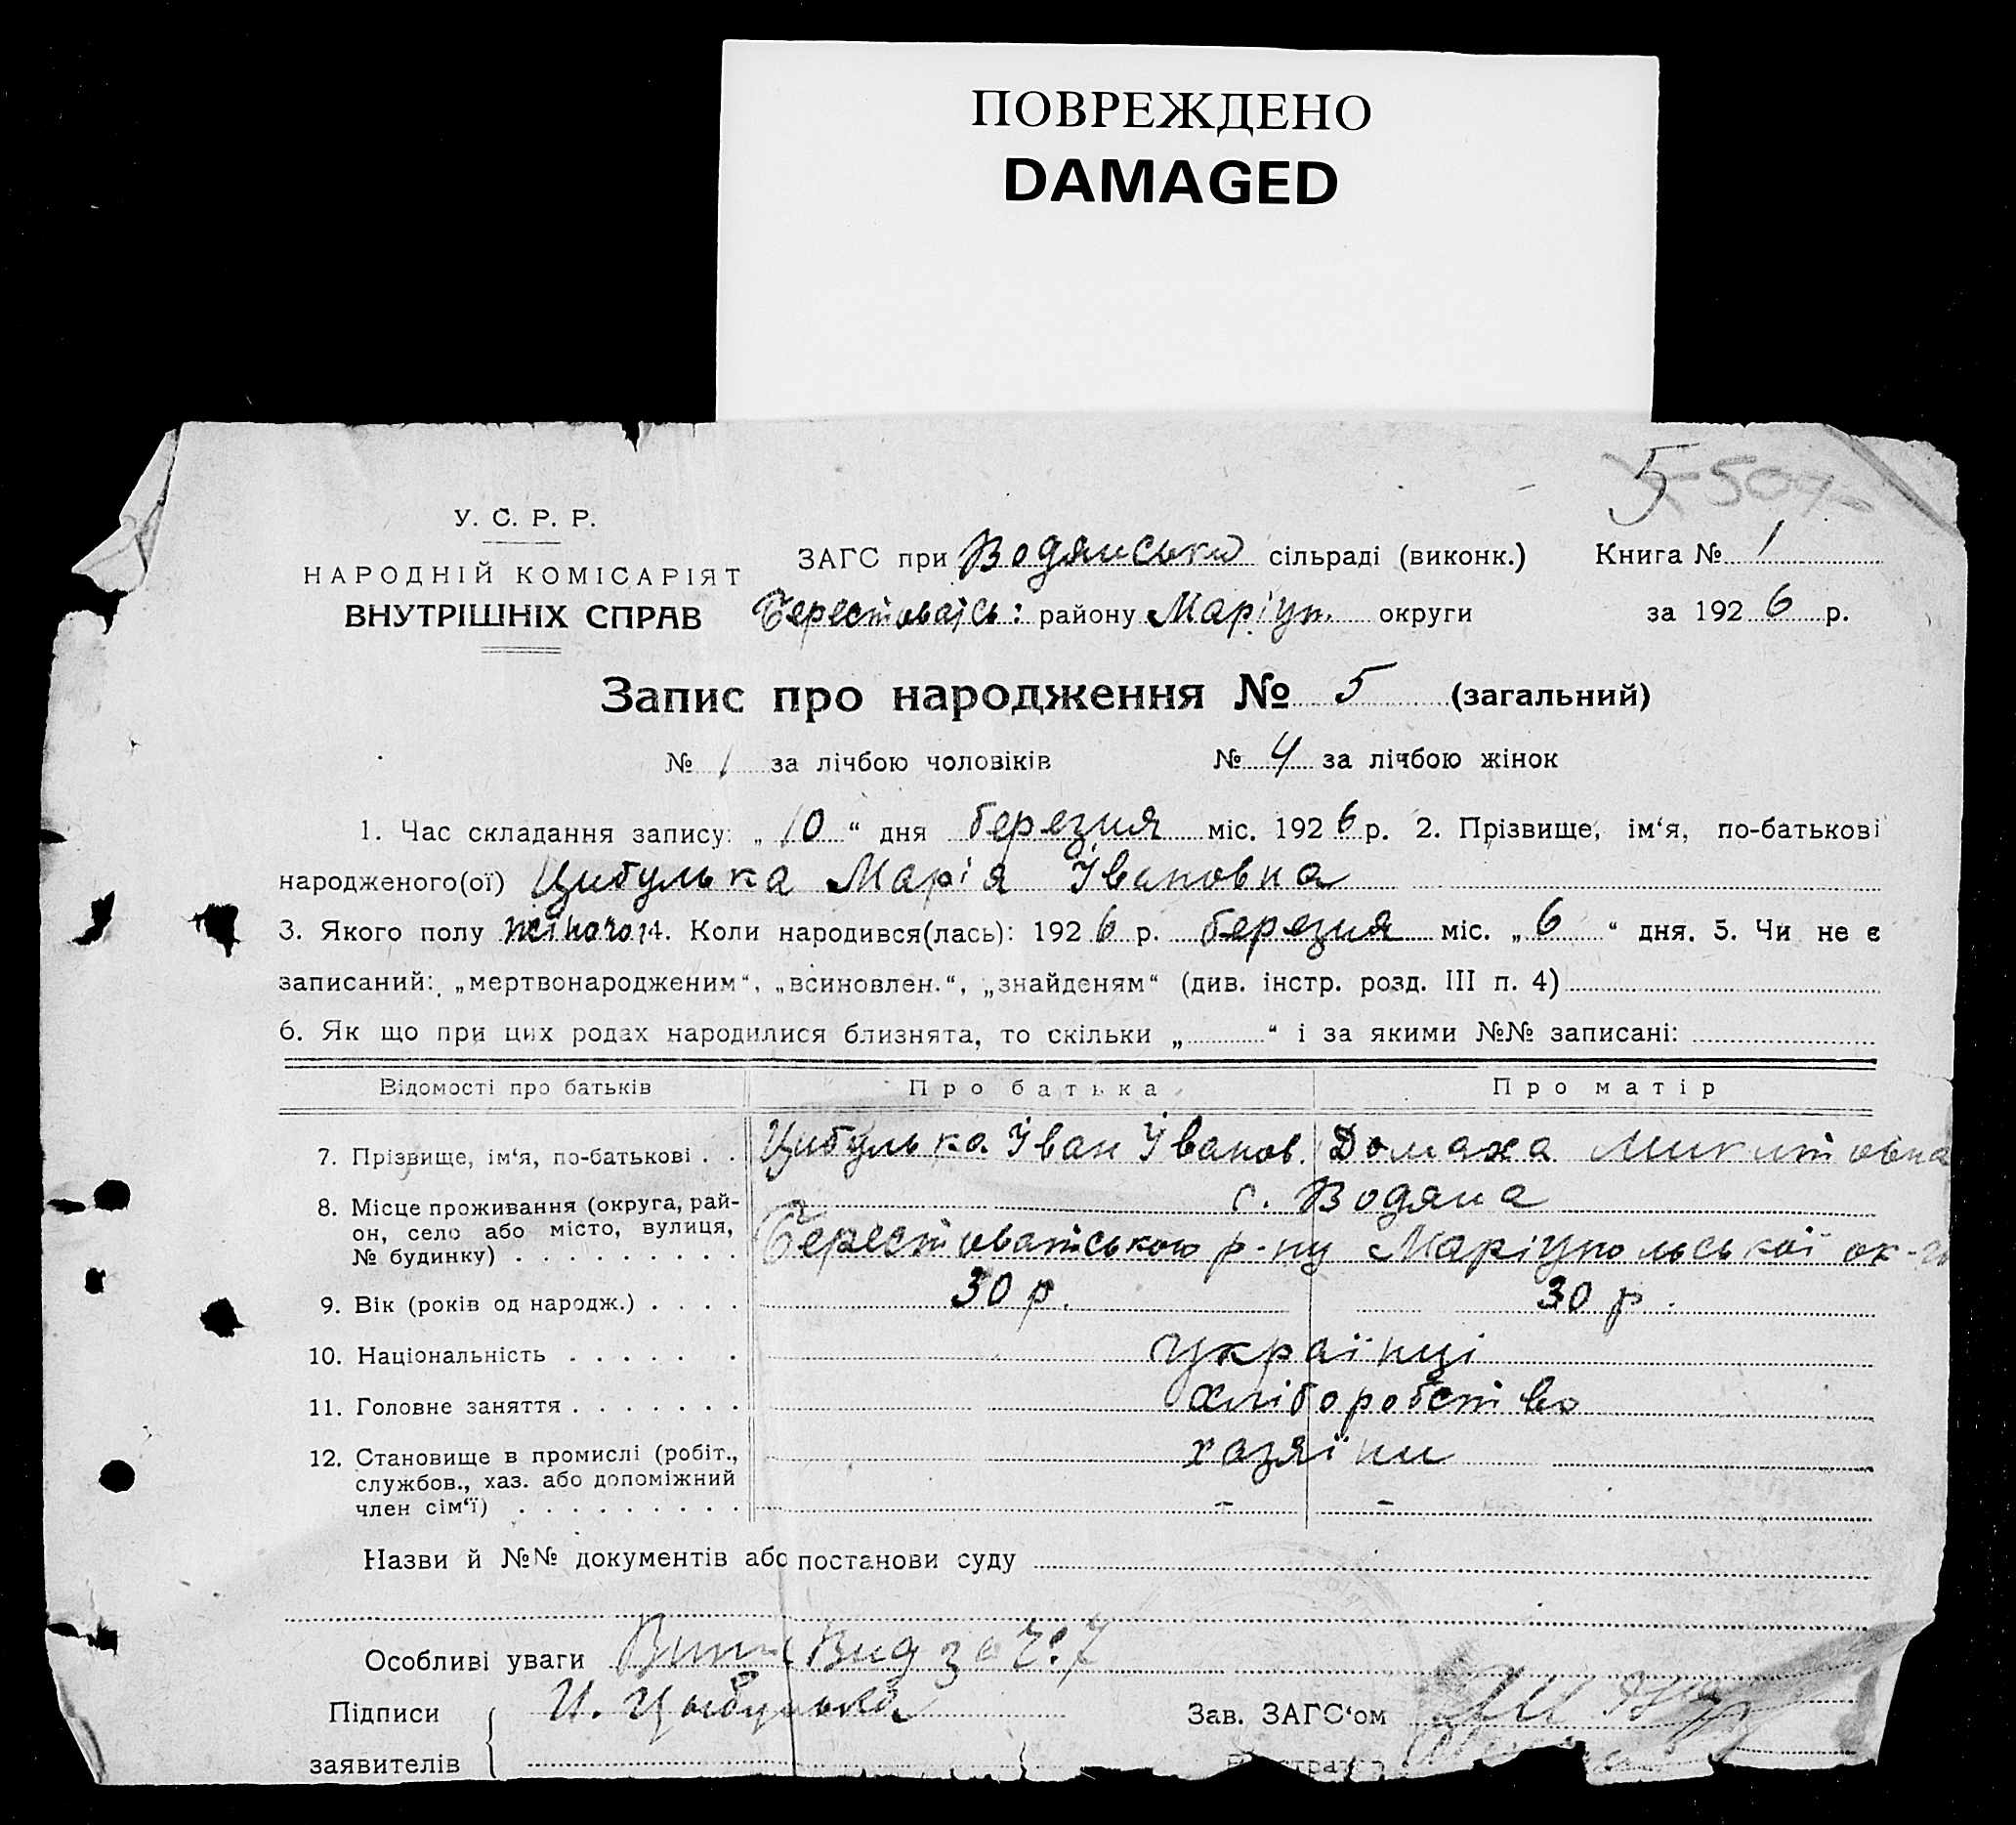 ПОВРЕЖДЕНО
DAMAGED
5
У. С. Р. Р.
НАРОДНІЙ КОМІСАРІЯТ
ВНУТРІШНІХ СПРАВ
ЗАГС при Водянські сільраді (виконк.) Книга № 1
Берестоваїсь: району Маріуп. округи за 1926 р.
Запис про народження № 5 (загальний)
№ 1 за лічбою чоловіків № 4 за лічбою жінок
1. Час складання запису: „10“ дня березня міс. 1926 р. 2. Прізвище, ім‘я, по-батькові
народженого(ої) Цибулька Марія Івановна
3. Якого полу жіночої 4. Коли народився(лась): 1926 р. березня міс. „6“ дня. 5. Чи не є
записаний: „мертвонародженим“, „всиновлен.“, „знайденям“ (див. інстр. розд. III п. 4)
6. Як що при цих родах народилися близнята, то скільки „ “ і за якими №№ записані:
Відомості про батьків Про батька Про матір
7. Прізвище, ім‘я, по-батькові . . Цибулька Іван Іванов. Домаха Микитовна
8. Місце проживання (округа, рай-
он, село або місто, вулиця,
№ будинку) . . . . . . . . .
с. Водяна
Берестоватського р-ну Маріупольської ок-
9. Вік (років од народж.) . . . . 30 р. 30 р.
10. Національність . . . . . . українці
11. Головне заняття . . . . . . . хліборобство
12. Становище в промислі (робіт.,
службов., хаз. або допоміжний
член сім‘ї) . . . . . . . . .
хазяїни
– –
Назви й №№ документів або постанови суду
Особливі уваги Вид за №: 7
Підписи И. Цыбулька Зав. ЗАГС‘ом
заявителів